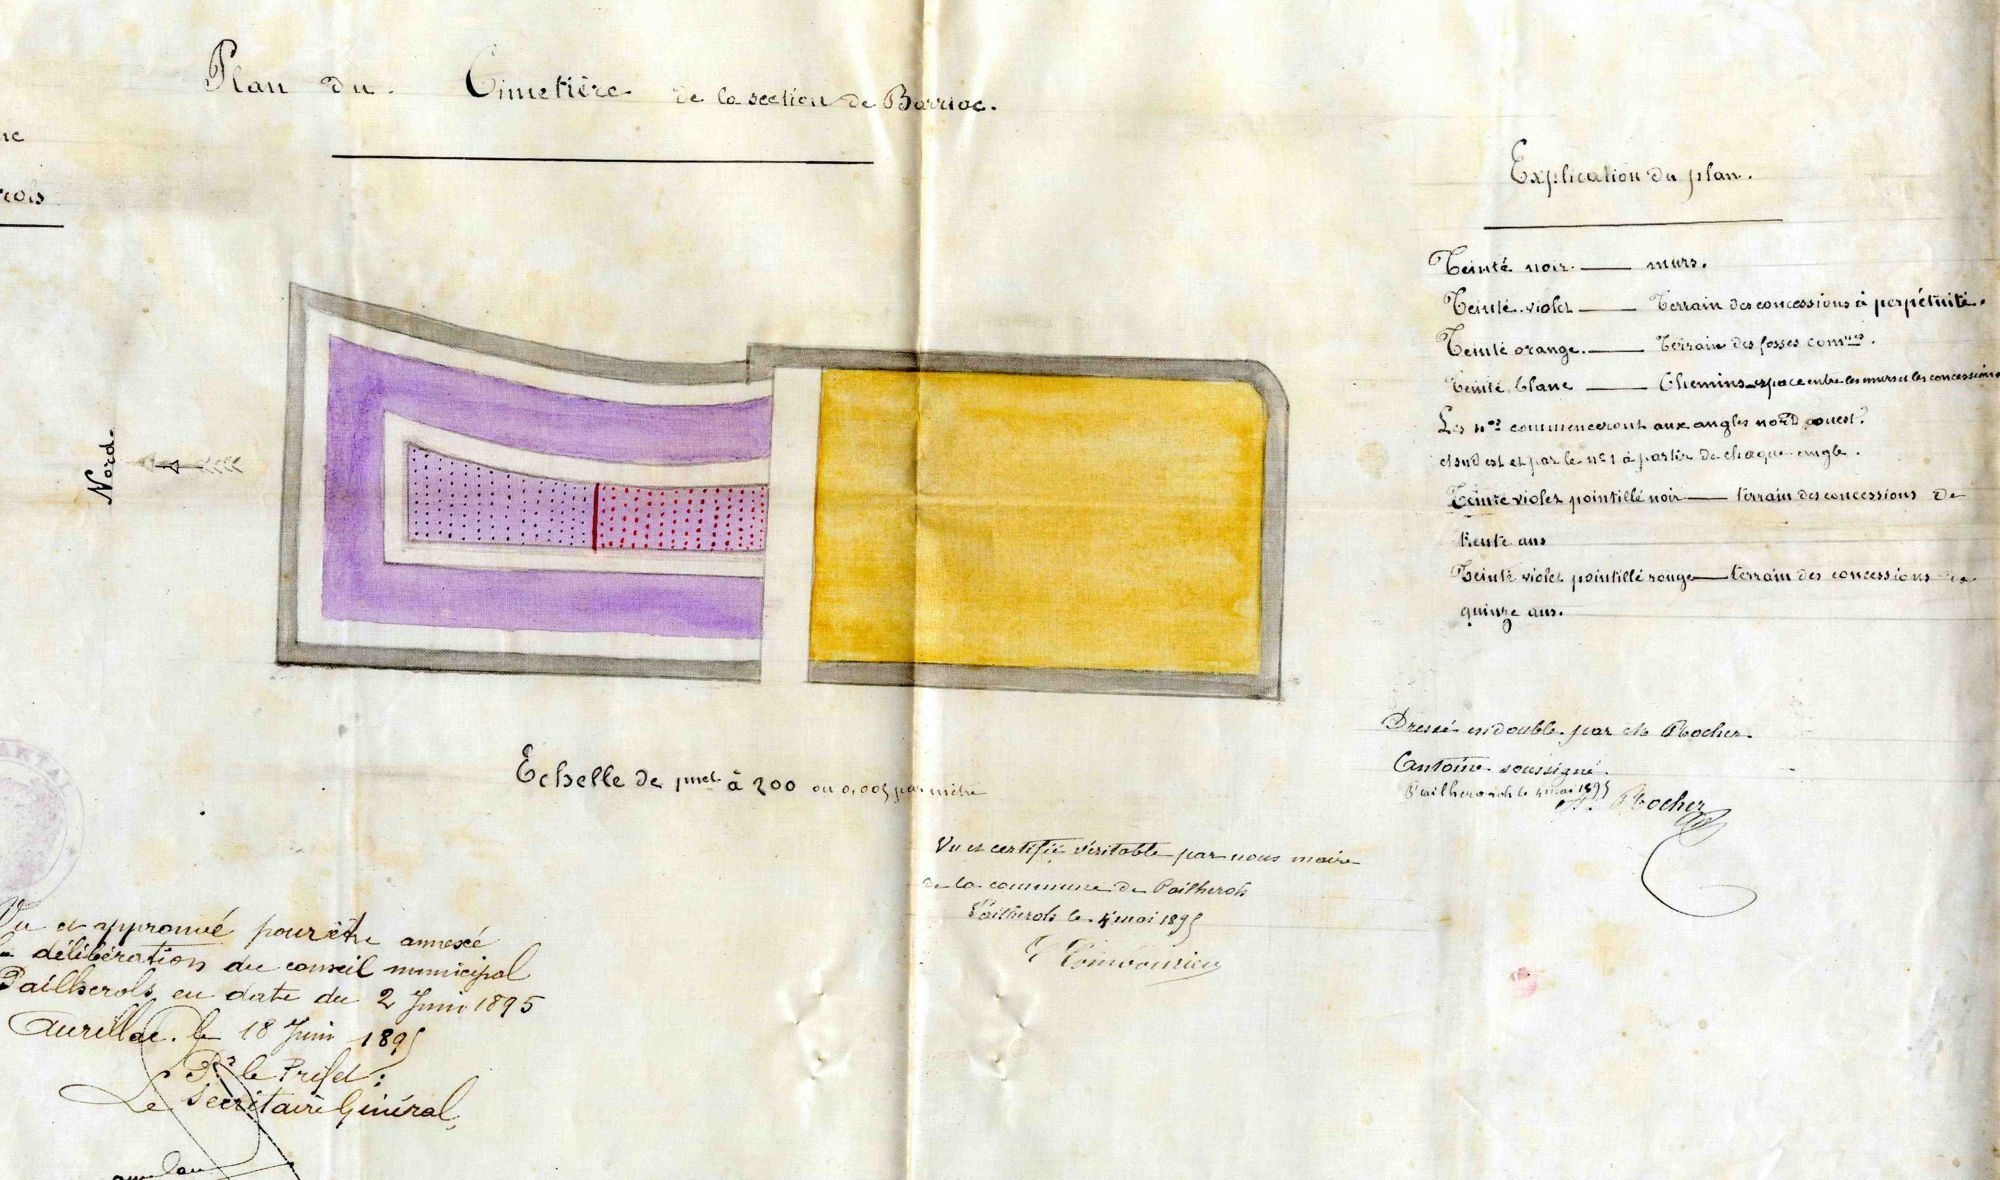 Plan du Cimetière de la section de Barriac.
rols
Explication du plan.
Teinté noir — murs.
Teinté violet — Terrain des concessions à perpétuité.
Teinté orange. — Terrain des fosses com^nes.
Teinté blanc — Chemins - espace entre les murs et les concessions
Les n^os commenceront aux angles nord ouest
et sud est et par le n° 1 à partir de chaque angle.
Teinté violet pointillé noir — terrain des concessions de
trente ans
Teinté violet pointillé rouge — terrain des concessions de
quinze ans.
Nord.
Echelle de 1^met à 200 ou 0,005 par mètre
Dressé en double par Rocher
Antoine soussigné.
Pailherols le 4 mai 1895
Rocher
Vu et certifié véritable par nous maire
de la commune de Pailherols
Pailherols le 4 mai 1895
CANTAL
Vu et approuvé pour être annexé
délibération du conseil municipal
Pailherols en date du 2 Juin 1895
Aurillac, le 18 Juin 1895
P^r le Préfet:
Le Secrétaire Général,